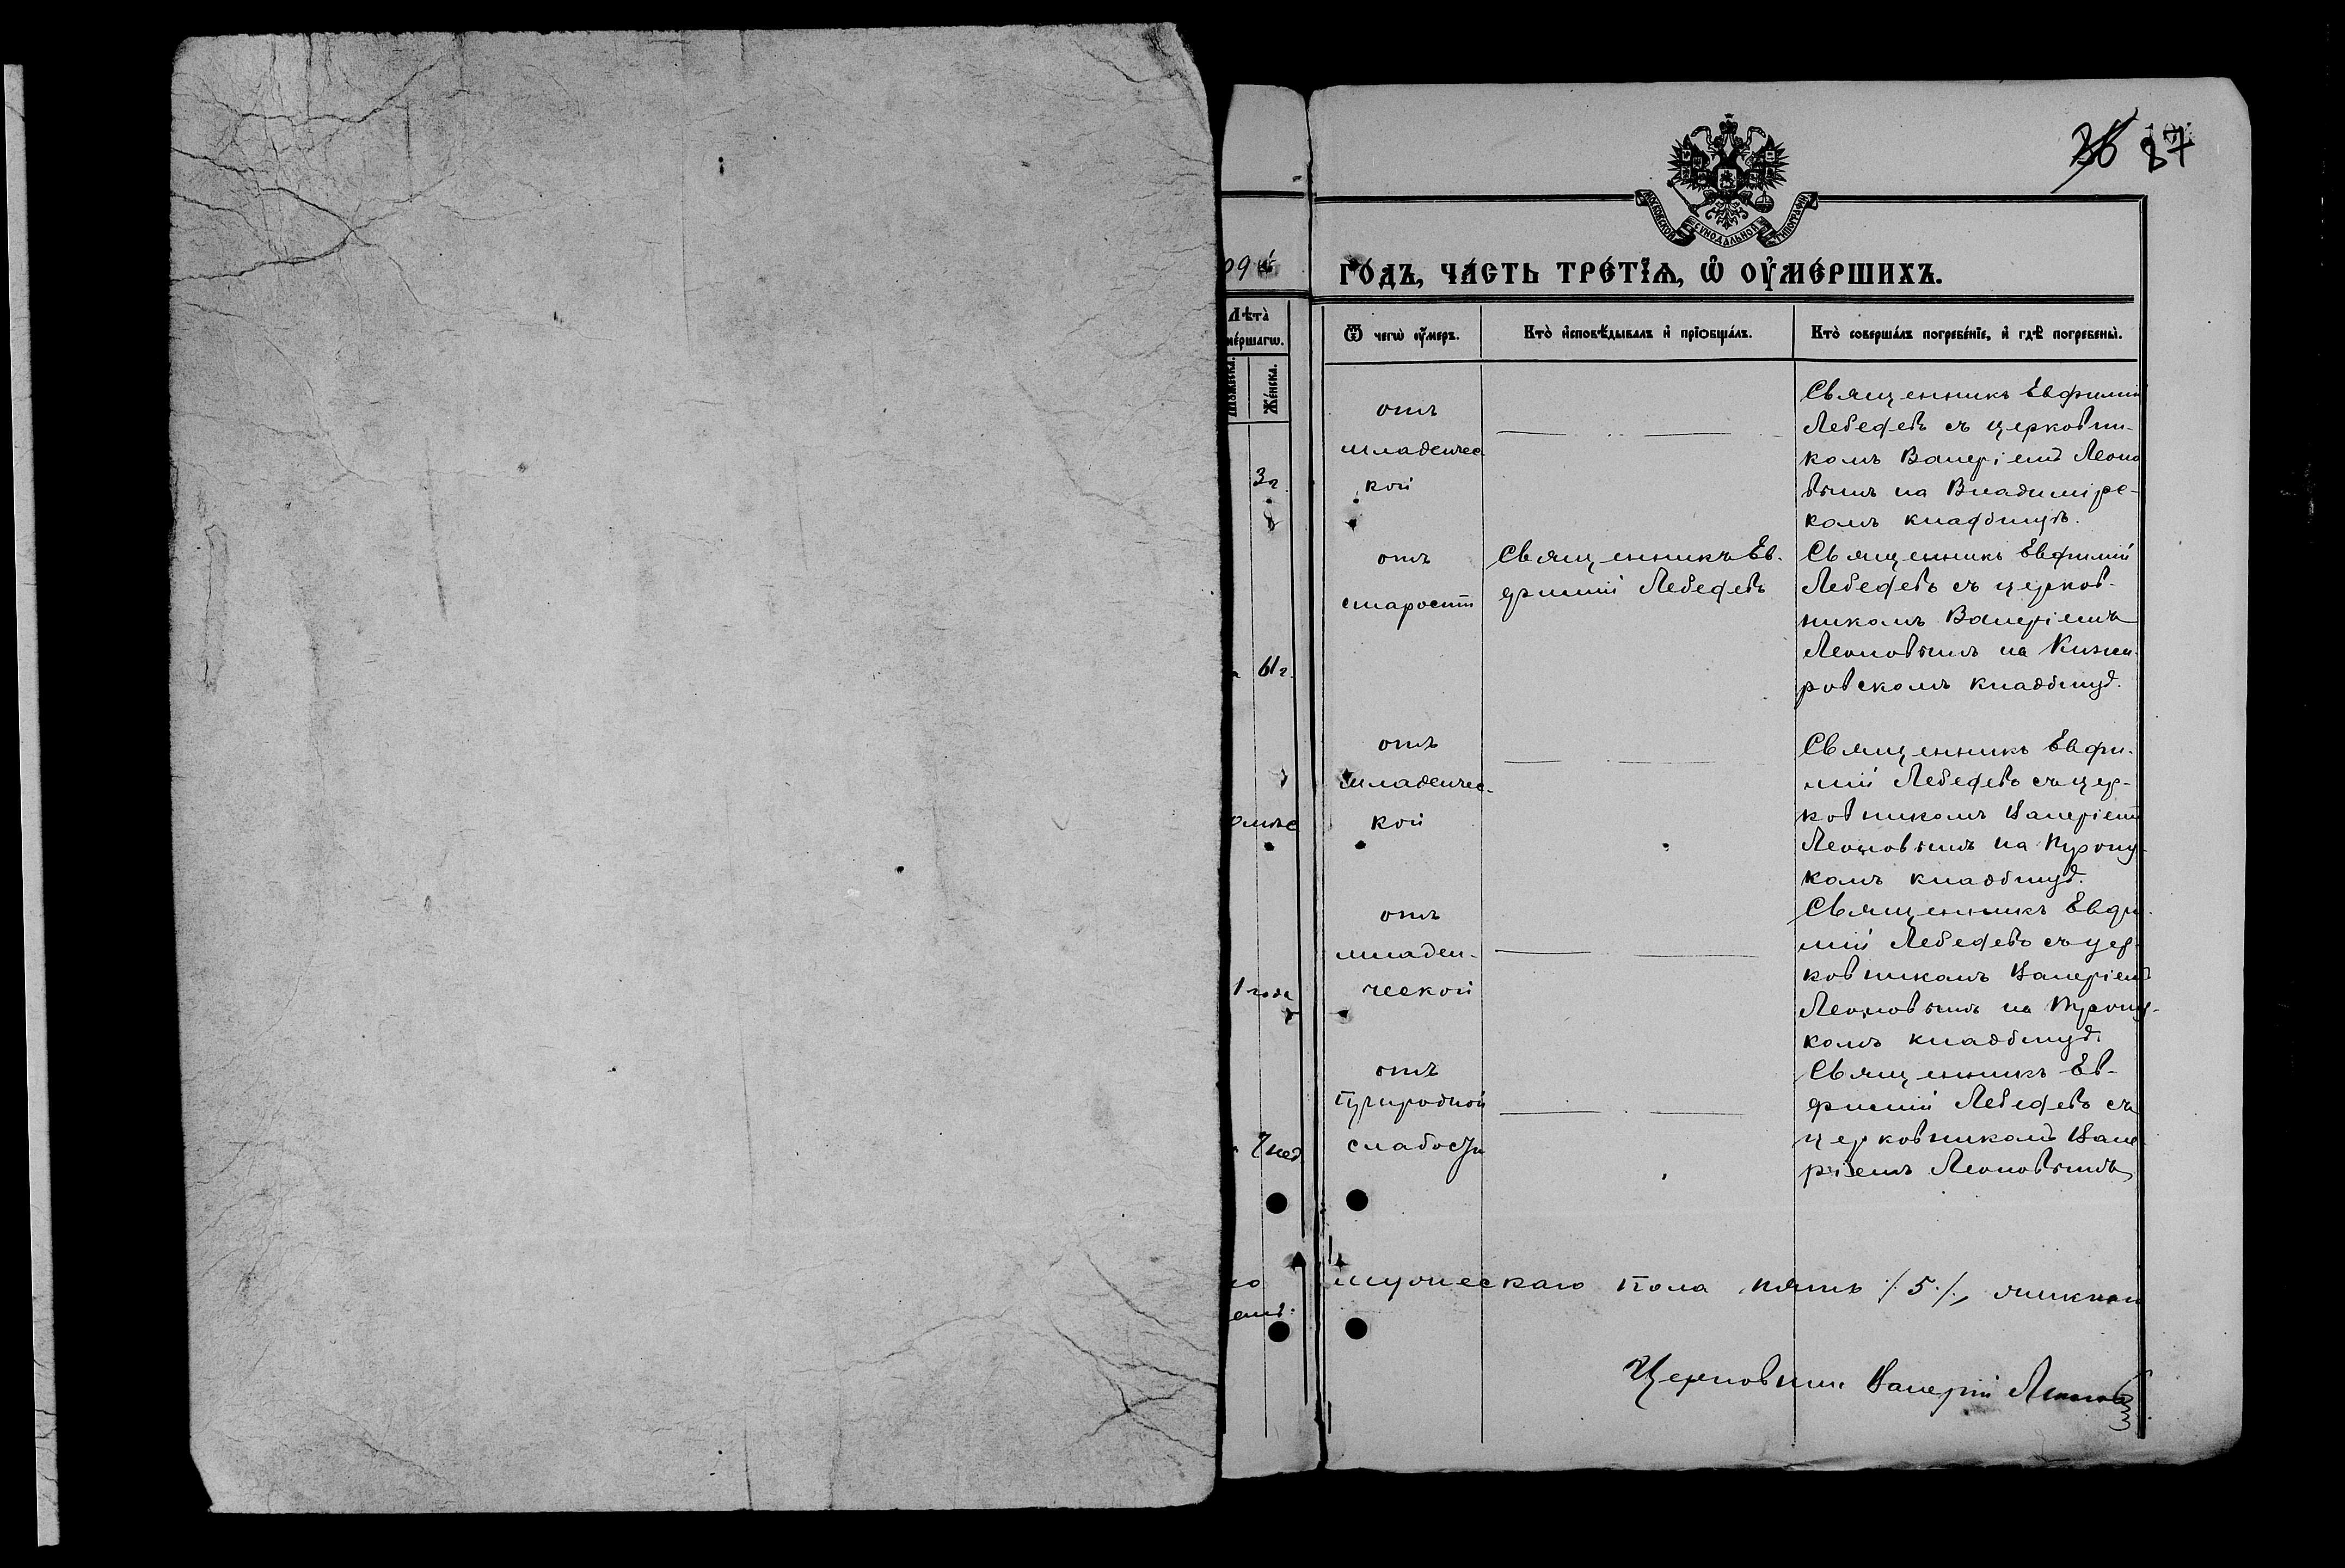 37
МОСКОВСКОЙ СѴНОДАЛЬНОЙ ТИПОГРАФІИ
09
го́дъ, ча́сть тре́тїѧ, ѡ҆ оу҆ме́ршихъ.
Лѣта̀
ме́ршагѡ.
Же́нска.
Ѿ чегѡ̀ оу҆́меръ.
Кто̀ и҆сповѣ́дывалъ и҆ прїѡбща́лъ.
Кто̀ соверша́лъ погребе́нїе, и҆ гдѣ̀ погребены̀.
3 г.
отъ
младенчес
кой
Священникъ Евфимій
Лебедевъ съ церковни-
комъ Валеріемъ Леоно
вымъ на Владимірс-
комъ кладбищѣ.
61 г.
отъ
старости
Священникъ Ев.
фимій Лебедевъ
Священникъ Евфимій
Лебедевъ съ церков-
никомъ Валеріемъ
Леоновымъ на
ровскомъ кладбищѣ.
отъ
младенчес-
кой
Священникъ Евфи-
мій Лебедевъ съ цер-
ковникомъ Валеріемъ
Леоновымъ на Троиц-
комъ кладбищѣ.
1 года
отъ
младен-
ческой
Священникъ Евфи-
мій Лебедевъ съ цер-
ковникомъ Валеріемъ
Леоновымъ на Троиц-
комъ кладбищѣ.
7 нед.
отъ
природной
слабости
Священникъ Ев-
фимій Лебедевъ съ
церковникомъ Вале-
ріемъ Леоновымъ
мужескаго пола пять /5/,
Церковникъ Валерій Леоновъ